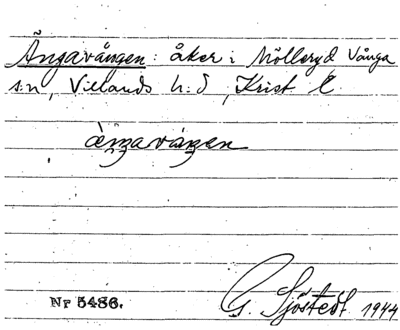 Ängavången: åker i Mölleryd Vånga
s:n, Villands h:d, Krist l.
Nr 5486.
G. Sjöstedt 1944